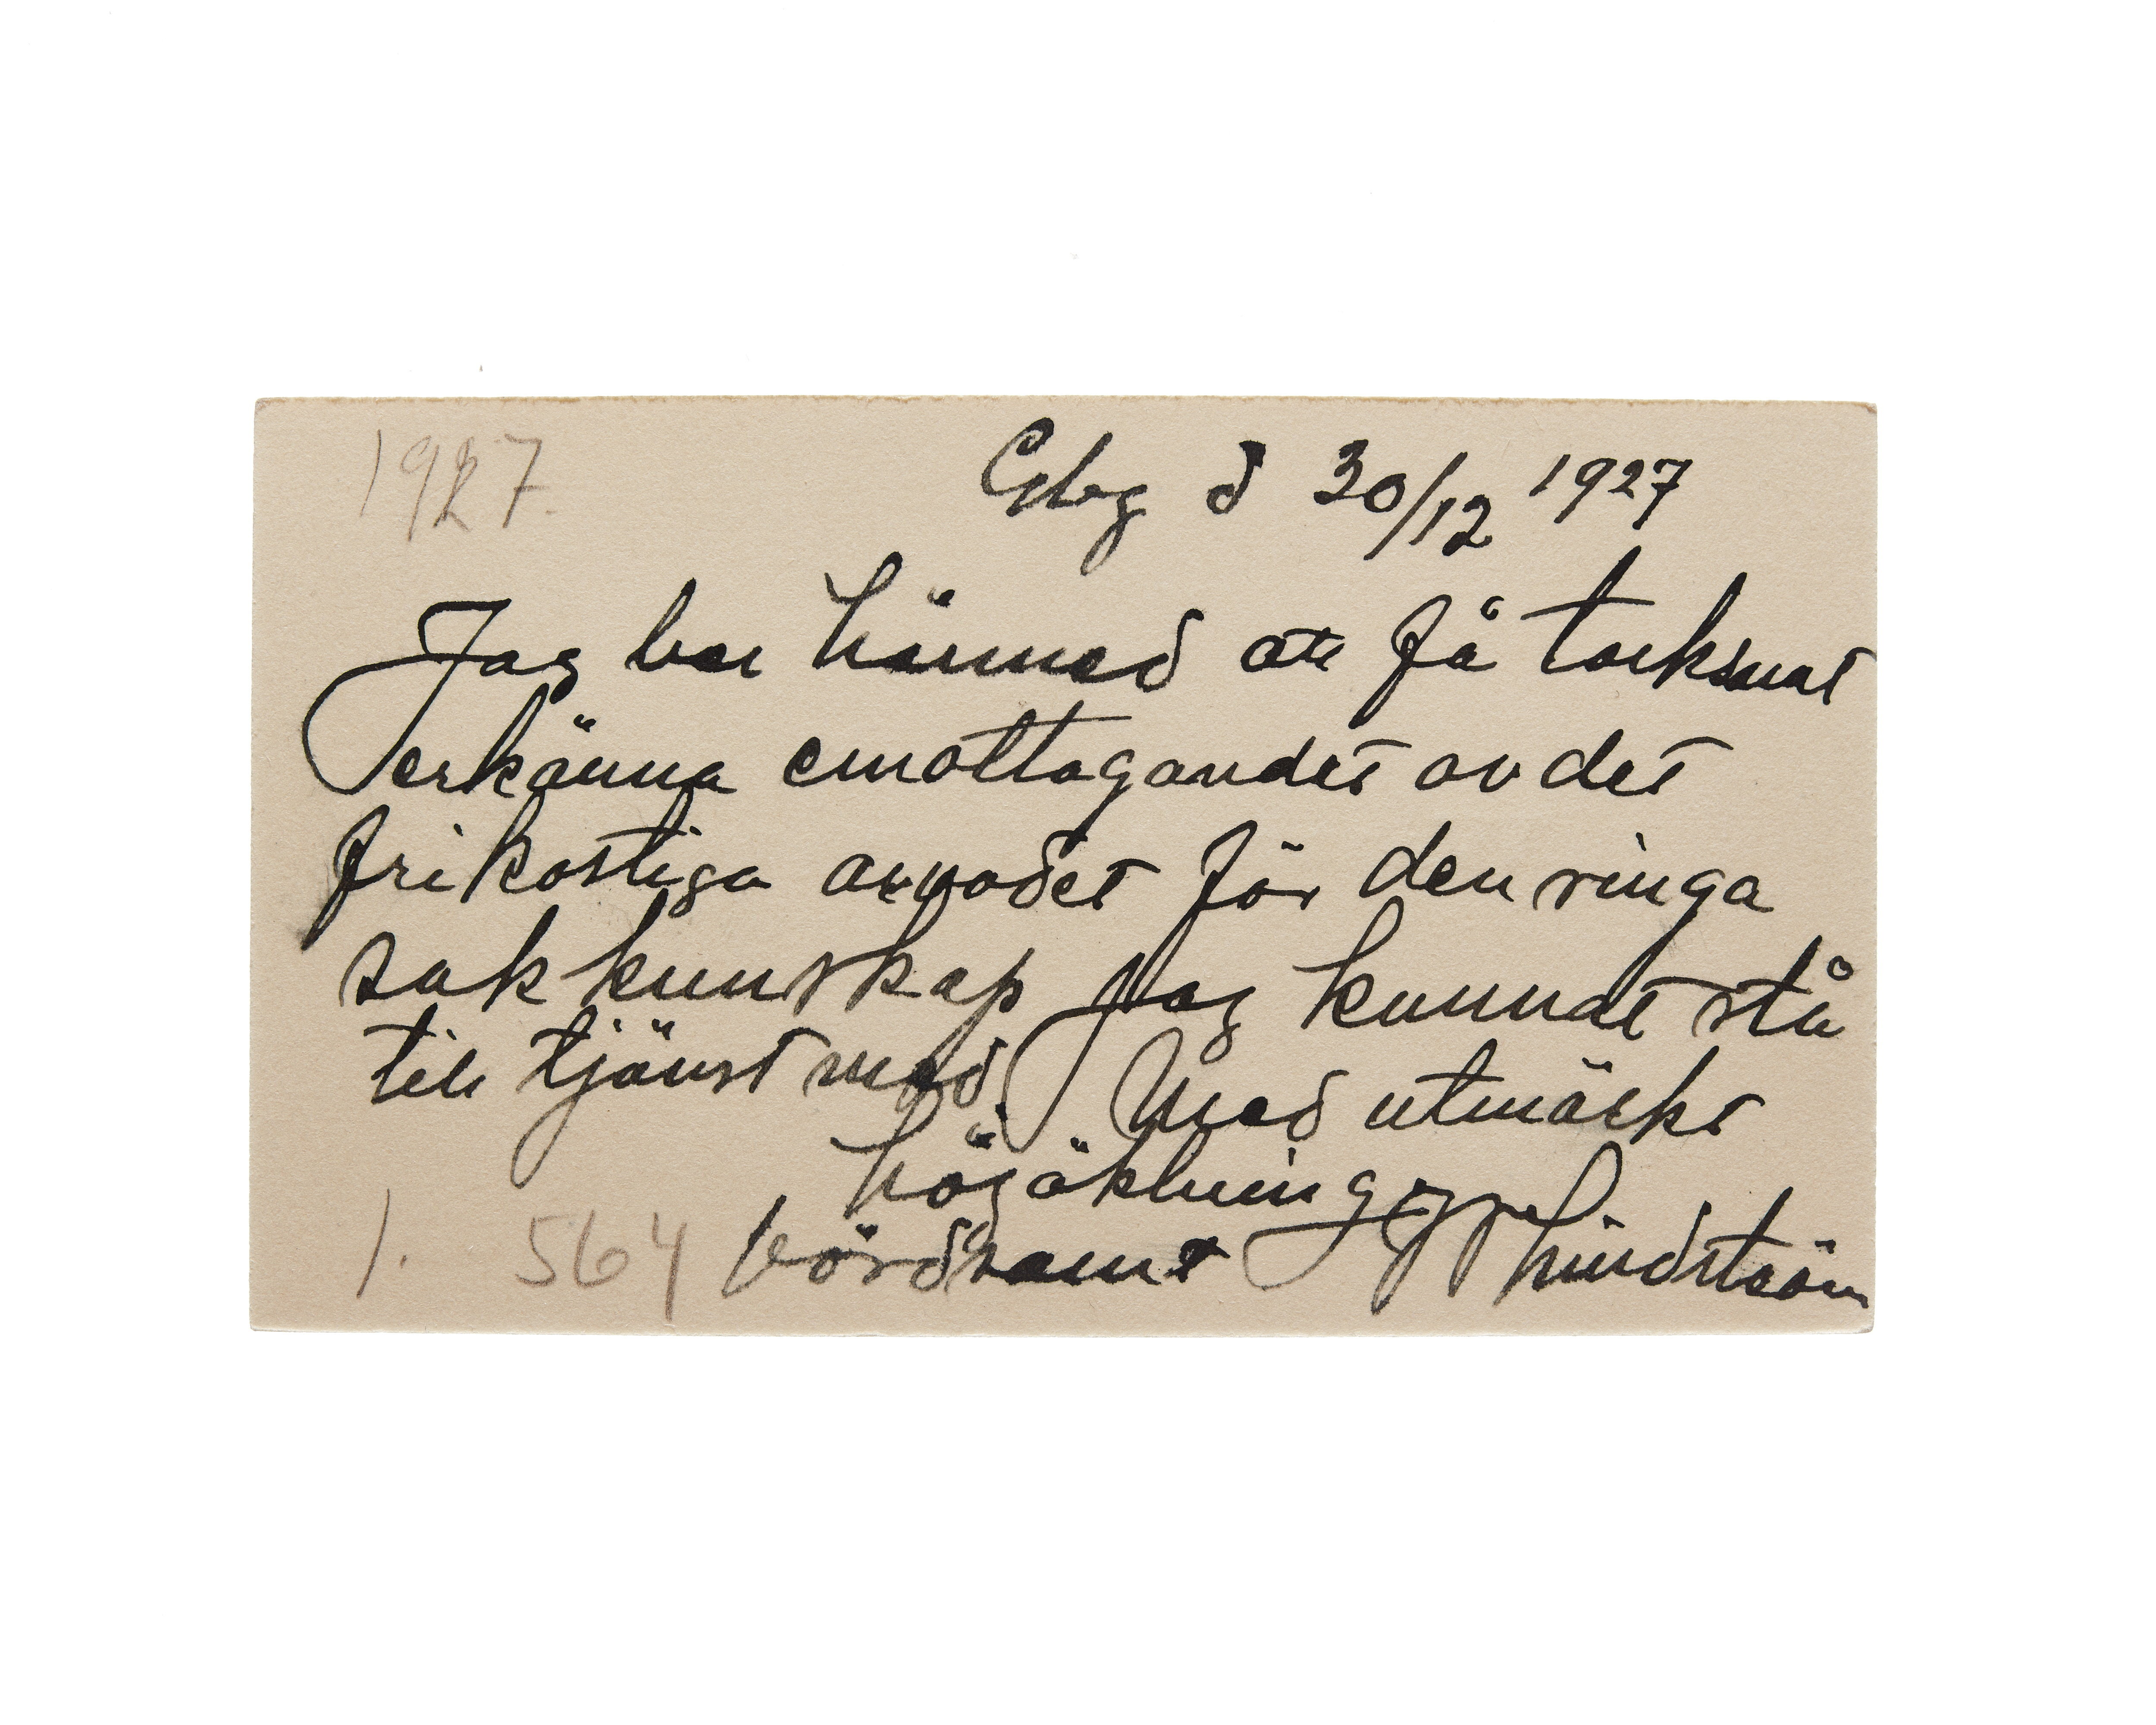 1927.
Gbg d 30/12 1927
Jag ber härmed att få tacksmat
erkänna emottagandet av det
frikostiga arvodet för den ringa
sakkunskap jag kunnat stå
till tjänst med Med utmärkt
högäktning
vördsamt Lindström
1. 564